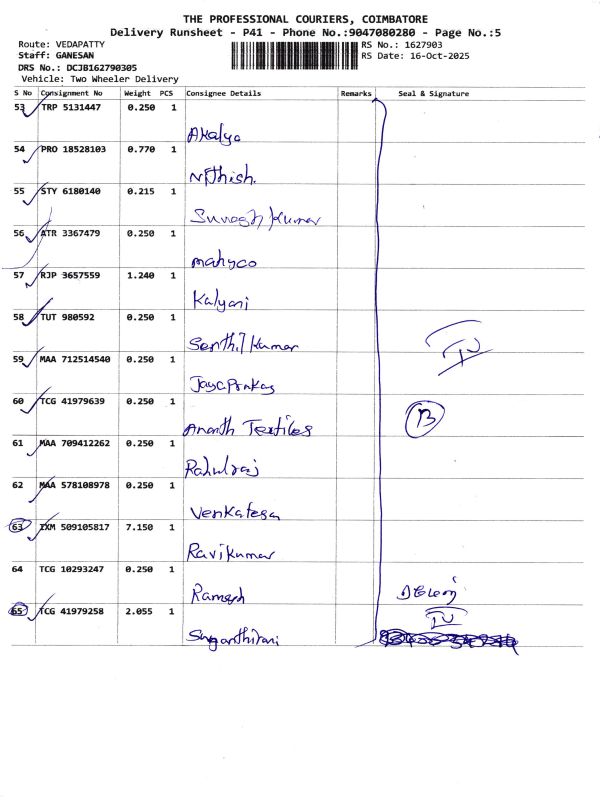 THE PROFESSIONAL COURIERS, COIMBATORE
Delivery Runsheet - P41 - Phone No.:9047080280 - Page No.:5
Route: VEDAPATTY
RS No.: 1627903
Staff: GANESAN
RS Date: 16-Oct-2025
DRS No.: DCJB162790305
Vehicle: Two Wheeler Delivery
S No Consignment No Weight PCS Consignee Details Remarks Seal & Signature
53 TRP 5131447 0.250 1
Akalya
54 PRO 18528103 0.770 1
Nithish.
55 STY 6180140 0.215 1
Suresh Kumar
56 ATR 3367479 0.250 1
mahyco
57 RJP 3657559 1.240 1
Kalyani
58 TUT 980592 0.250 1
Senthil Kumar
59 MAA 712514540 0.250 1
Jayaprakas
60 TCG 41979639 0.250 1
Ananth Textiles
61 MAA 709412262 0.250 1
Rahulraj
62 MAA 578108978 0.250 1
Venkatesa
63 IXM 509105817 7.150 1
Ravikumar
64 TCG 10293247 0.250 1
Ramesh
65 TCG 41979258 2.055 1
Suganthirani